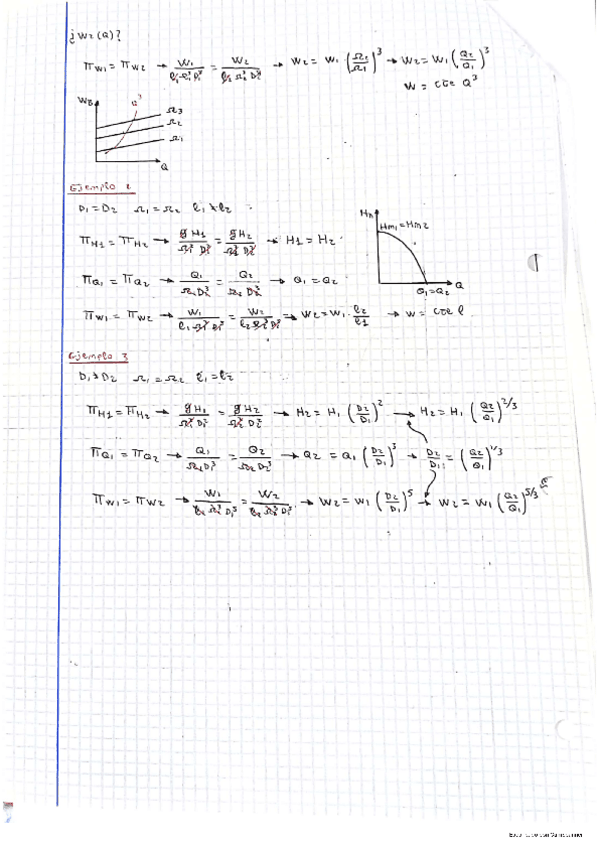 ¿W2(Q)?
πW1 = πW2 → W1/(ρ1·Ω1³D1⁵) = W2/(ρ2 Ω2³ D2⁵) → W2 = W1 · (Ω2/Ω1)³ → W2 = W1 (Q2/Q1)³
W = cte Q³
Q³ Ω3
Ω2
Ω1
Q
Ejemplo 2
D1 = D2 Ω1 = Ω2 ρ1 ≠ ρ2
Hm1 = Hm2
πH1 = πH2 → gH1/(Ω1² D1²) = gH2/(Ω2² D2²) → H1 = H2
πQ1 = πQ2 → Q1/(Ω1 D1³) = Q2/(Ω2 D2³) → Q1 = Q2
Q
Q1 = Q2
πW1 = πW2 → W1/(ρ1·Ω1³ D1⁵) = W2/(ρ2 Ω2³ D2⁵) → W2 = W1 · ρ2/ρ1 → W = cte ρ
Ejemplo 3
D1 ≠ D2 Ω1 = Ω2 ρ1 = ρ2
πH1 = πH2 → gH1/(Ω1² D1²) = gH2/(Ω2² D2²) → H2 = H1 (D2/D1)² → H2 = H1 (Q2/Q1)^2/3
πQ1 = πQ2 → Q1/(Ω1 D1³) = Q2/(Ω2 D2³) → Q2 = Q1 (D2/D1)³ → D2/D1 = (Q2/Q1)^1/3
πW1 = πW2 → W1/(ρ1 Ω1³ D1⁵) = W2/(ρ2 Ω2³ D2⁵) → W2 = W1 (D2/D1)⁵ → W2 = W1 (Q2/Q1)^5/3